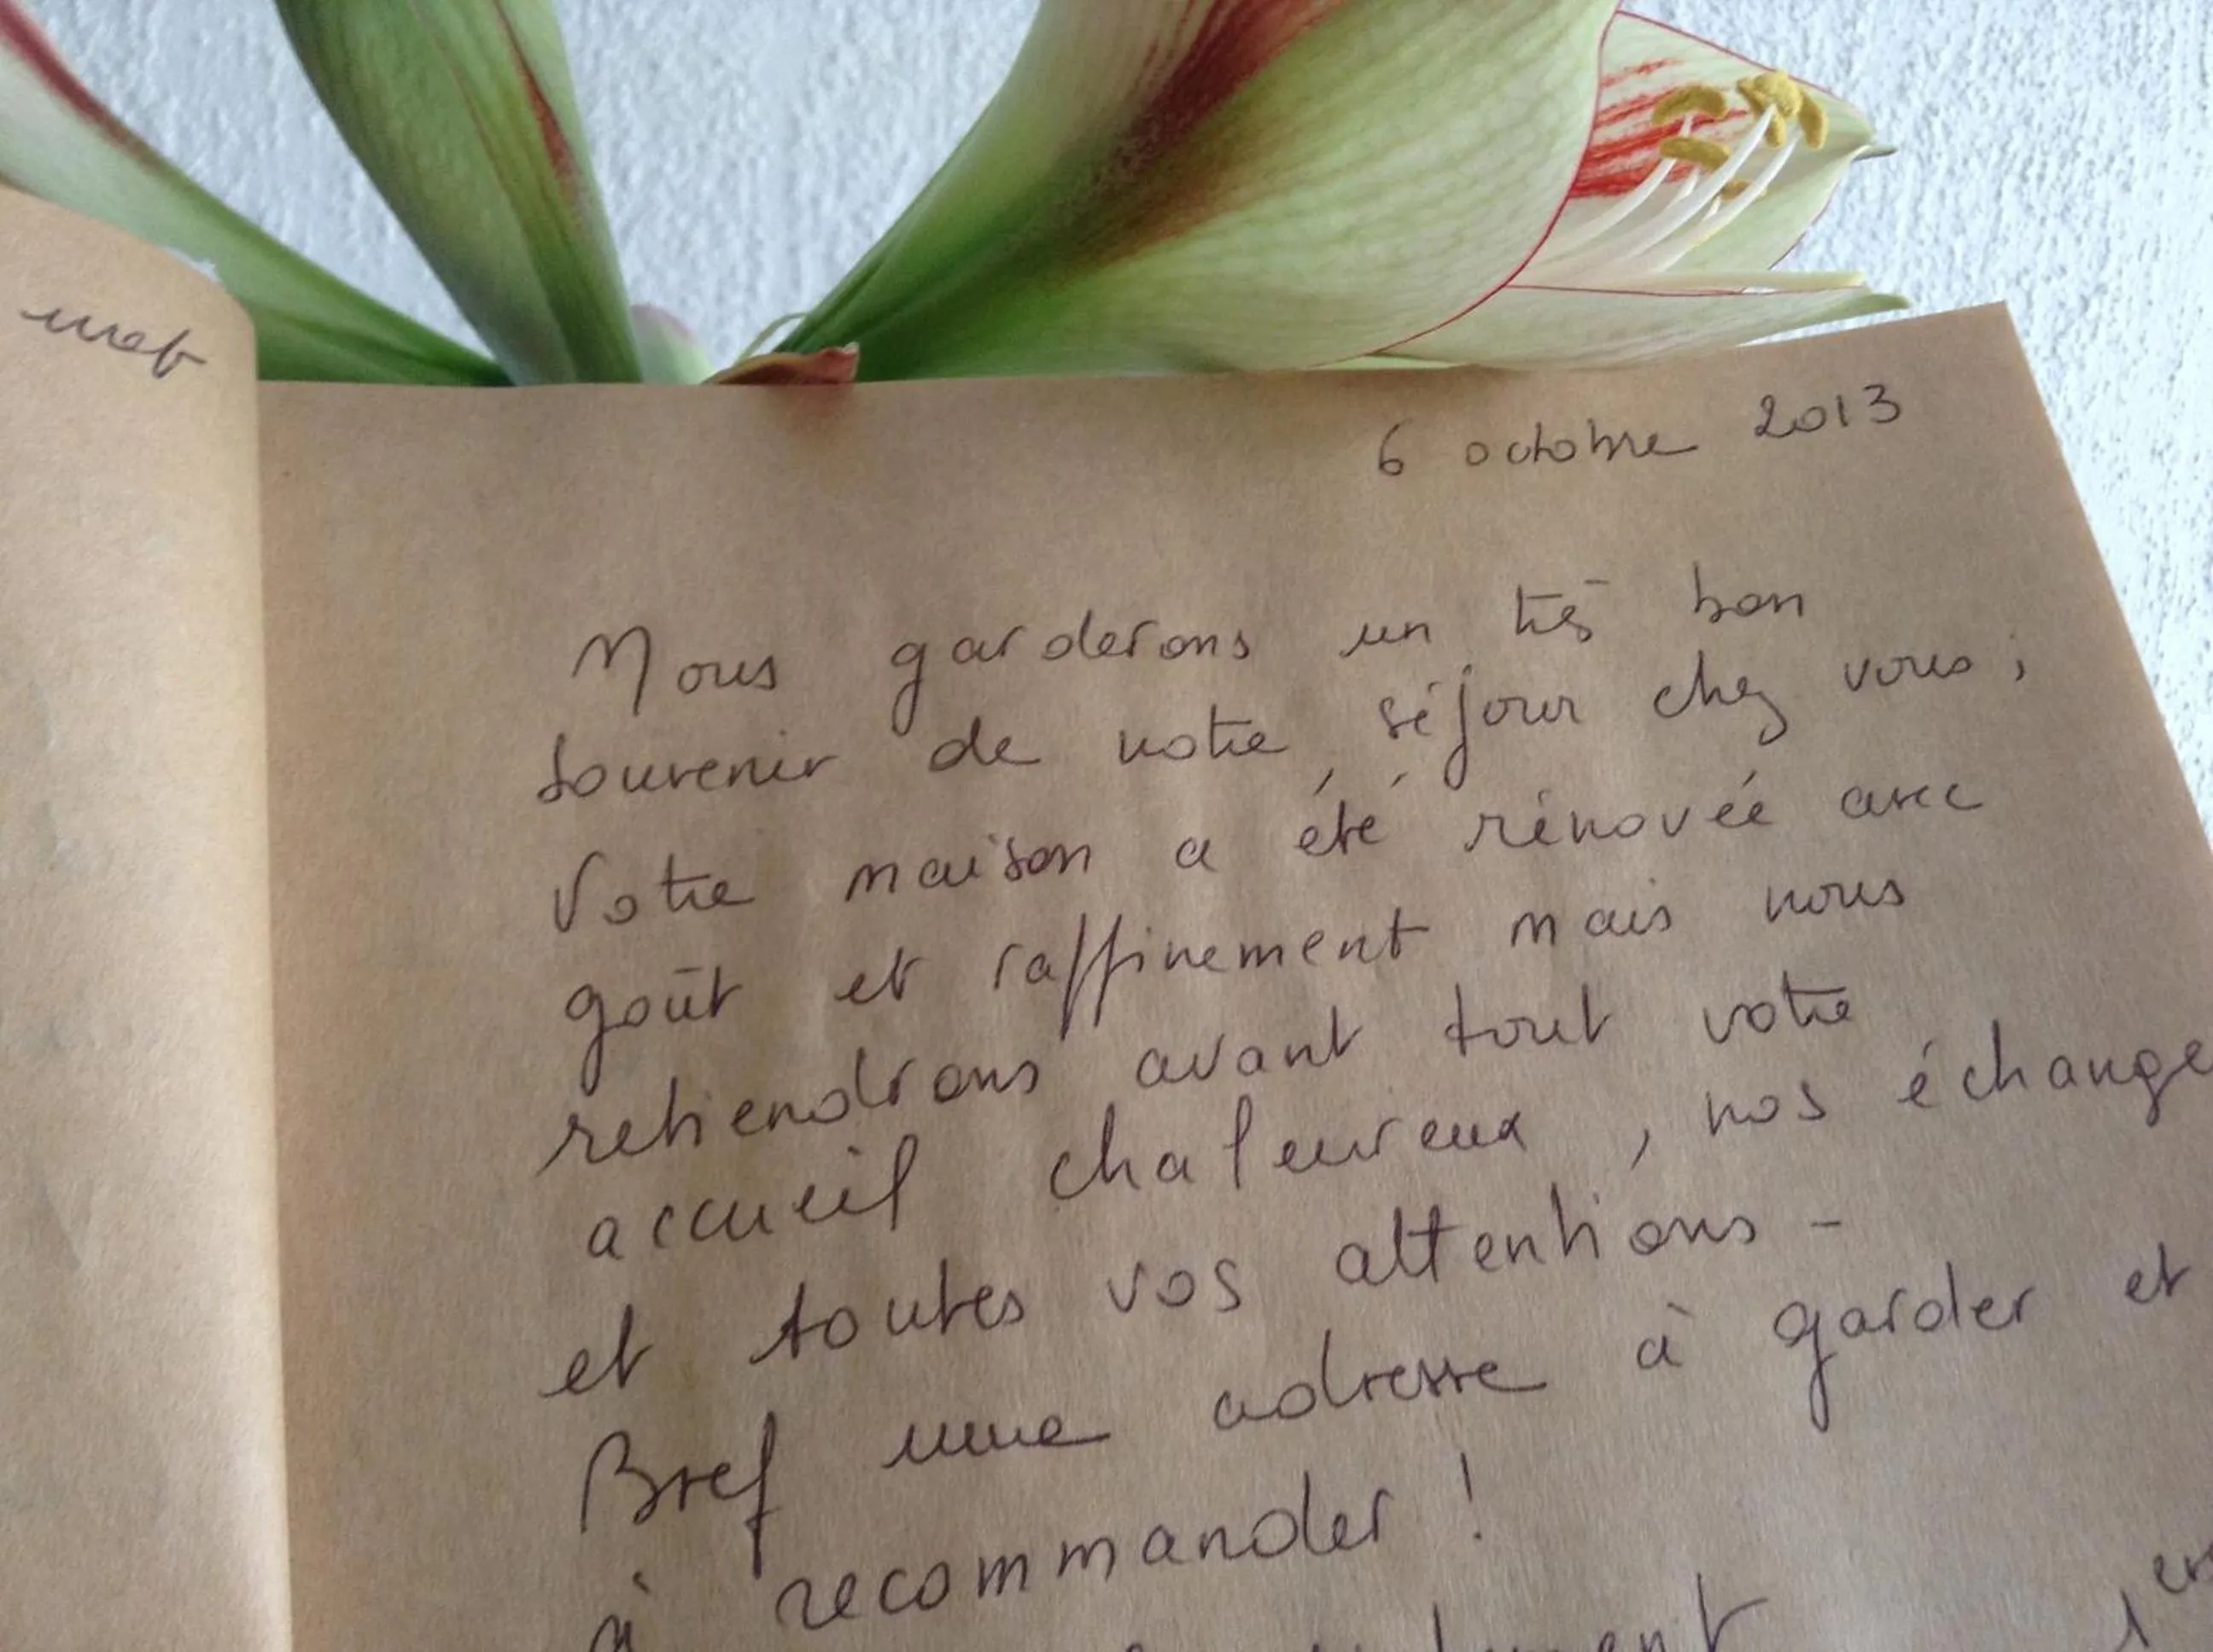 6 octobre 2013
Nous garderons un très bon
souvenir de notre séjour chez vous ;
Votre maison a été rénovée avec
goût et raffinement mais nous
retiendrons avant tout votre
accueil chaleureux , nos échange
et toutes vos attentions -
Bref une adresse à garder et
à recommander !